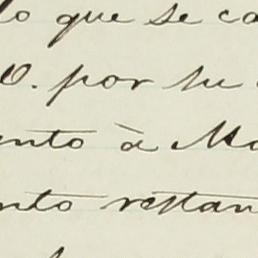 lo que se ca
O. por su
ento à Ma
nto restan